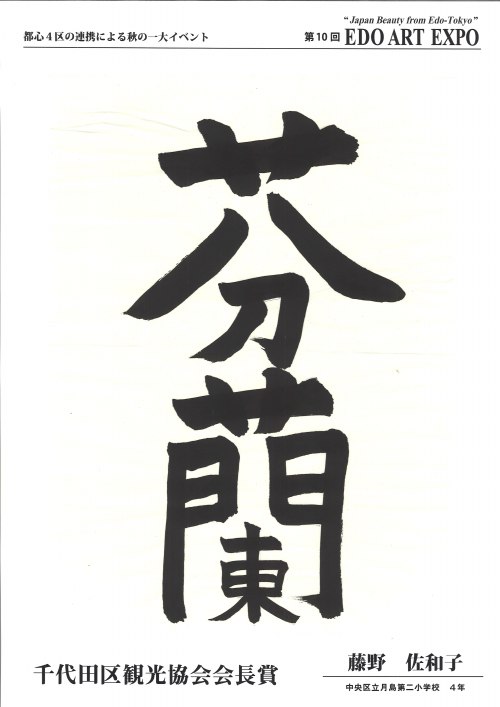 “Japan Beauty from Edo-Tokyo”
都心4区の連携による秋の一大イベント 第10回 EDO ART EXPO
芬
蘭
千代田区観光協会会長賞
藤野 佐和子
中央区立月島第二小学校 4年